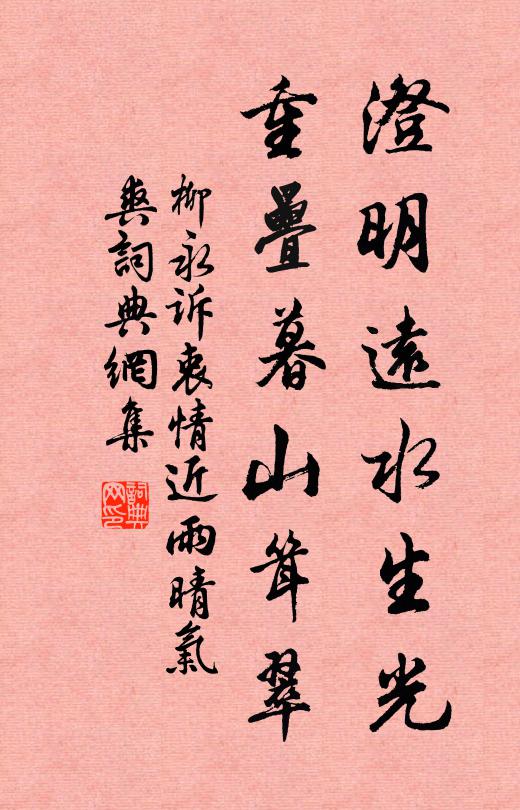 澄明遠水生光
重疊暮山耸翠
柳永诉衷情近雨晴氣
爽詞典網集
詞典
网印